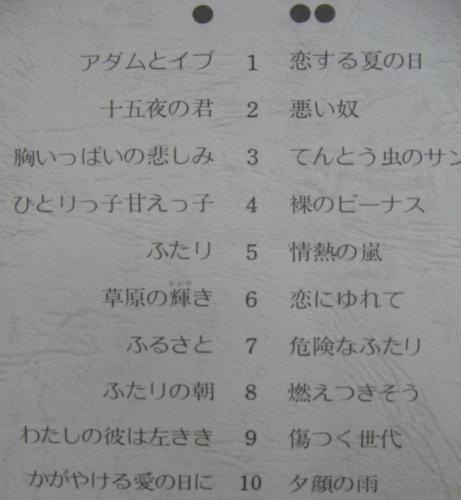 ● ●●
アダムとイブ 1 恋する夏の日
十五夜の君 2 悪い奴
胸いっぱいの悲しみ 3 てんとう虫のサン
ひとりっ子甘えっ子 4 裸のビーナス
ふたり 5 情熱の嵐
草原の輝き 6 恋にゆれて
ふるさと 7 危険なふたり
ふたりの朝 8 燃えつきそう
わたしの彼は左きき 9 傷つく世代
かがやける愛の日に 10 夕顔の雨